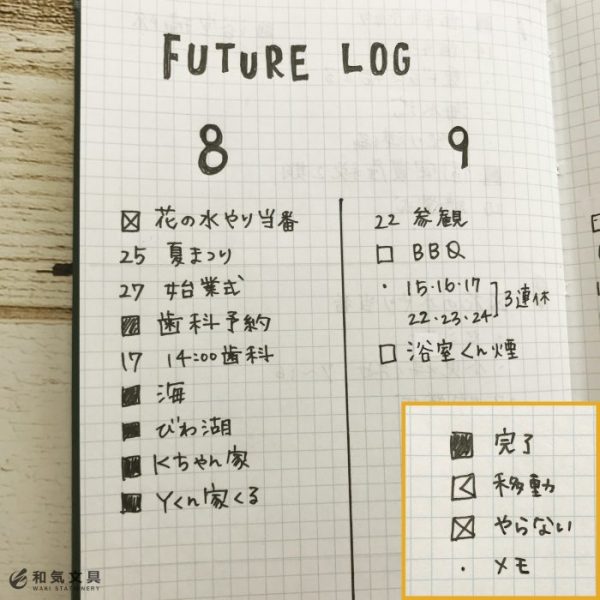 FUTURE LOG
8
☒ 花の水やり当番
25 夏まつり
27 始業式
■ 歯科予約
17 14:00歯科
■ 海
■ びわ湖
■ Kちゃん家
■ Yくん家くる
9
22 参観
□ BBQ
・ 15・16・17
22・23・24 ] 3連休
□ 浴室くん煙
■ 完了
移動
☒ やらない
・ メモ
和気文具
WAKI STATIONERY